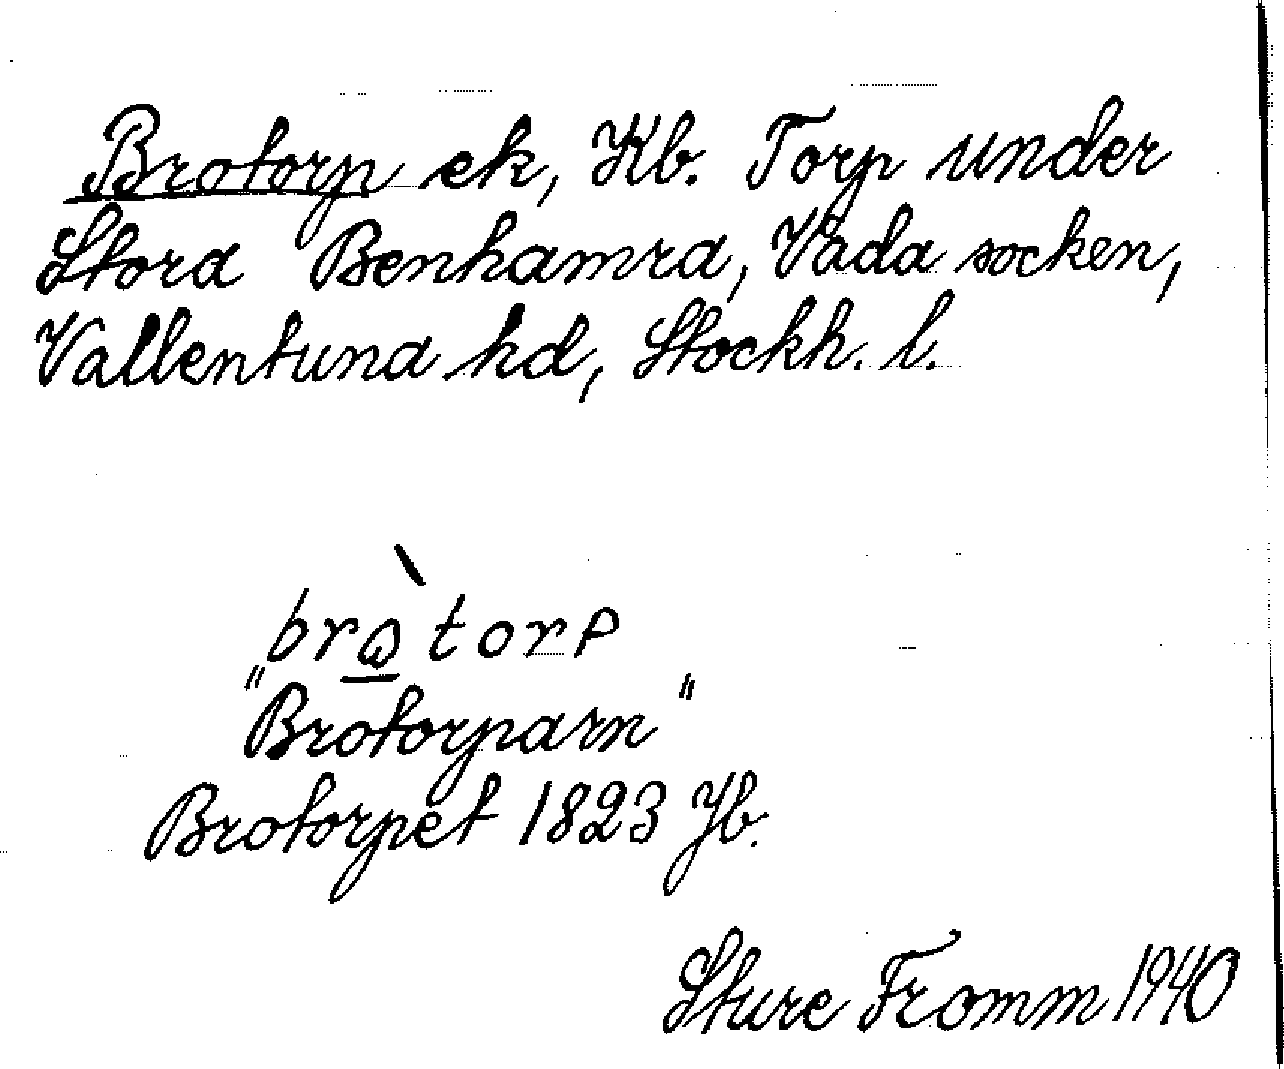 Brotorp ek, Kb. Torp under
Stora Benhamra, Vada socken,
Vallentuna hd, Stockh. l.
brὼ̲torp
"Brotorparn"
Brotorpet 1823 Jb.
Sture Fromm 1940